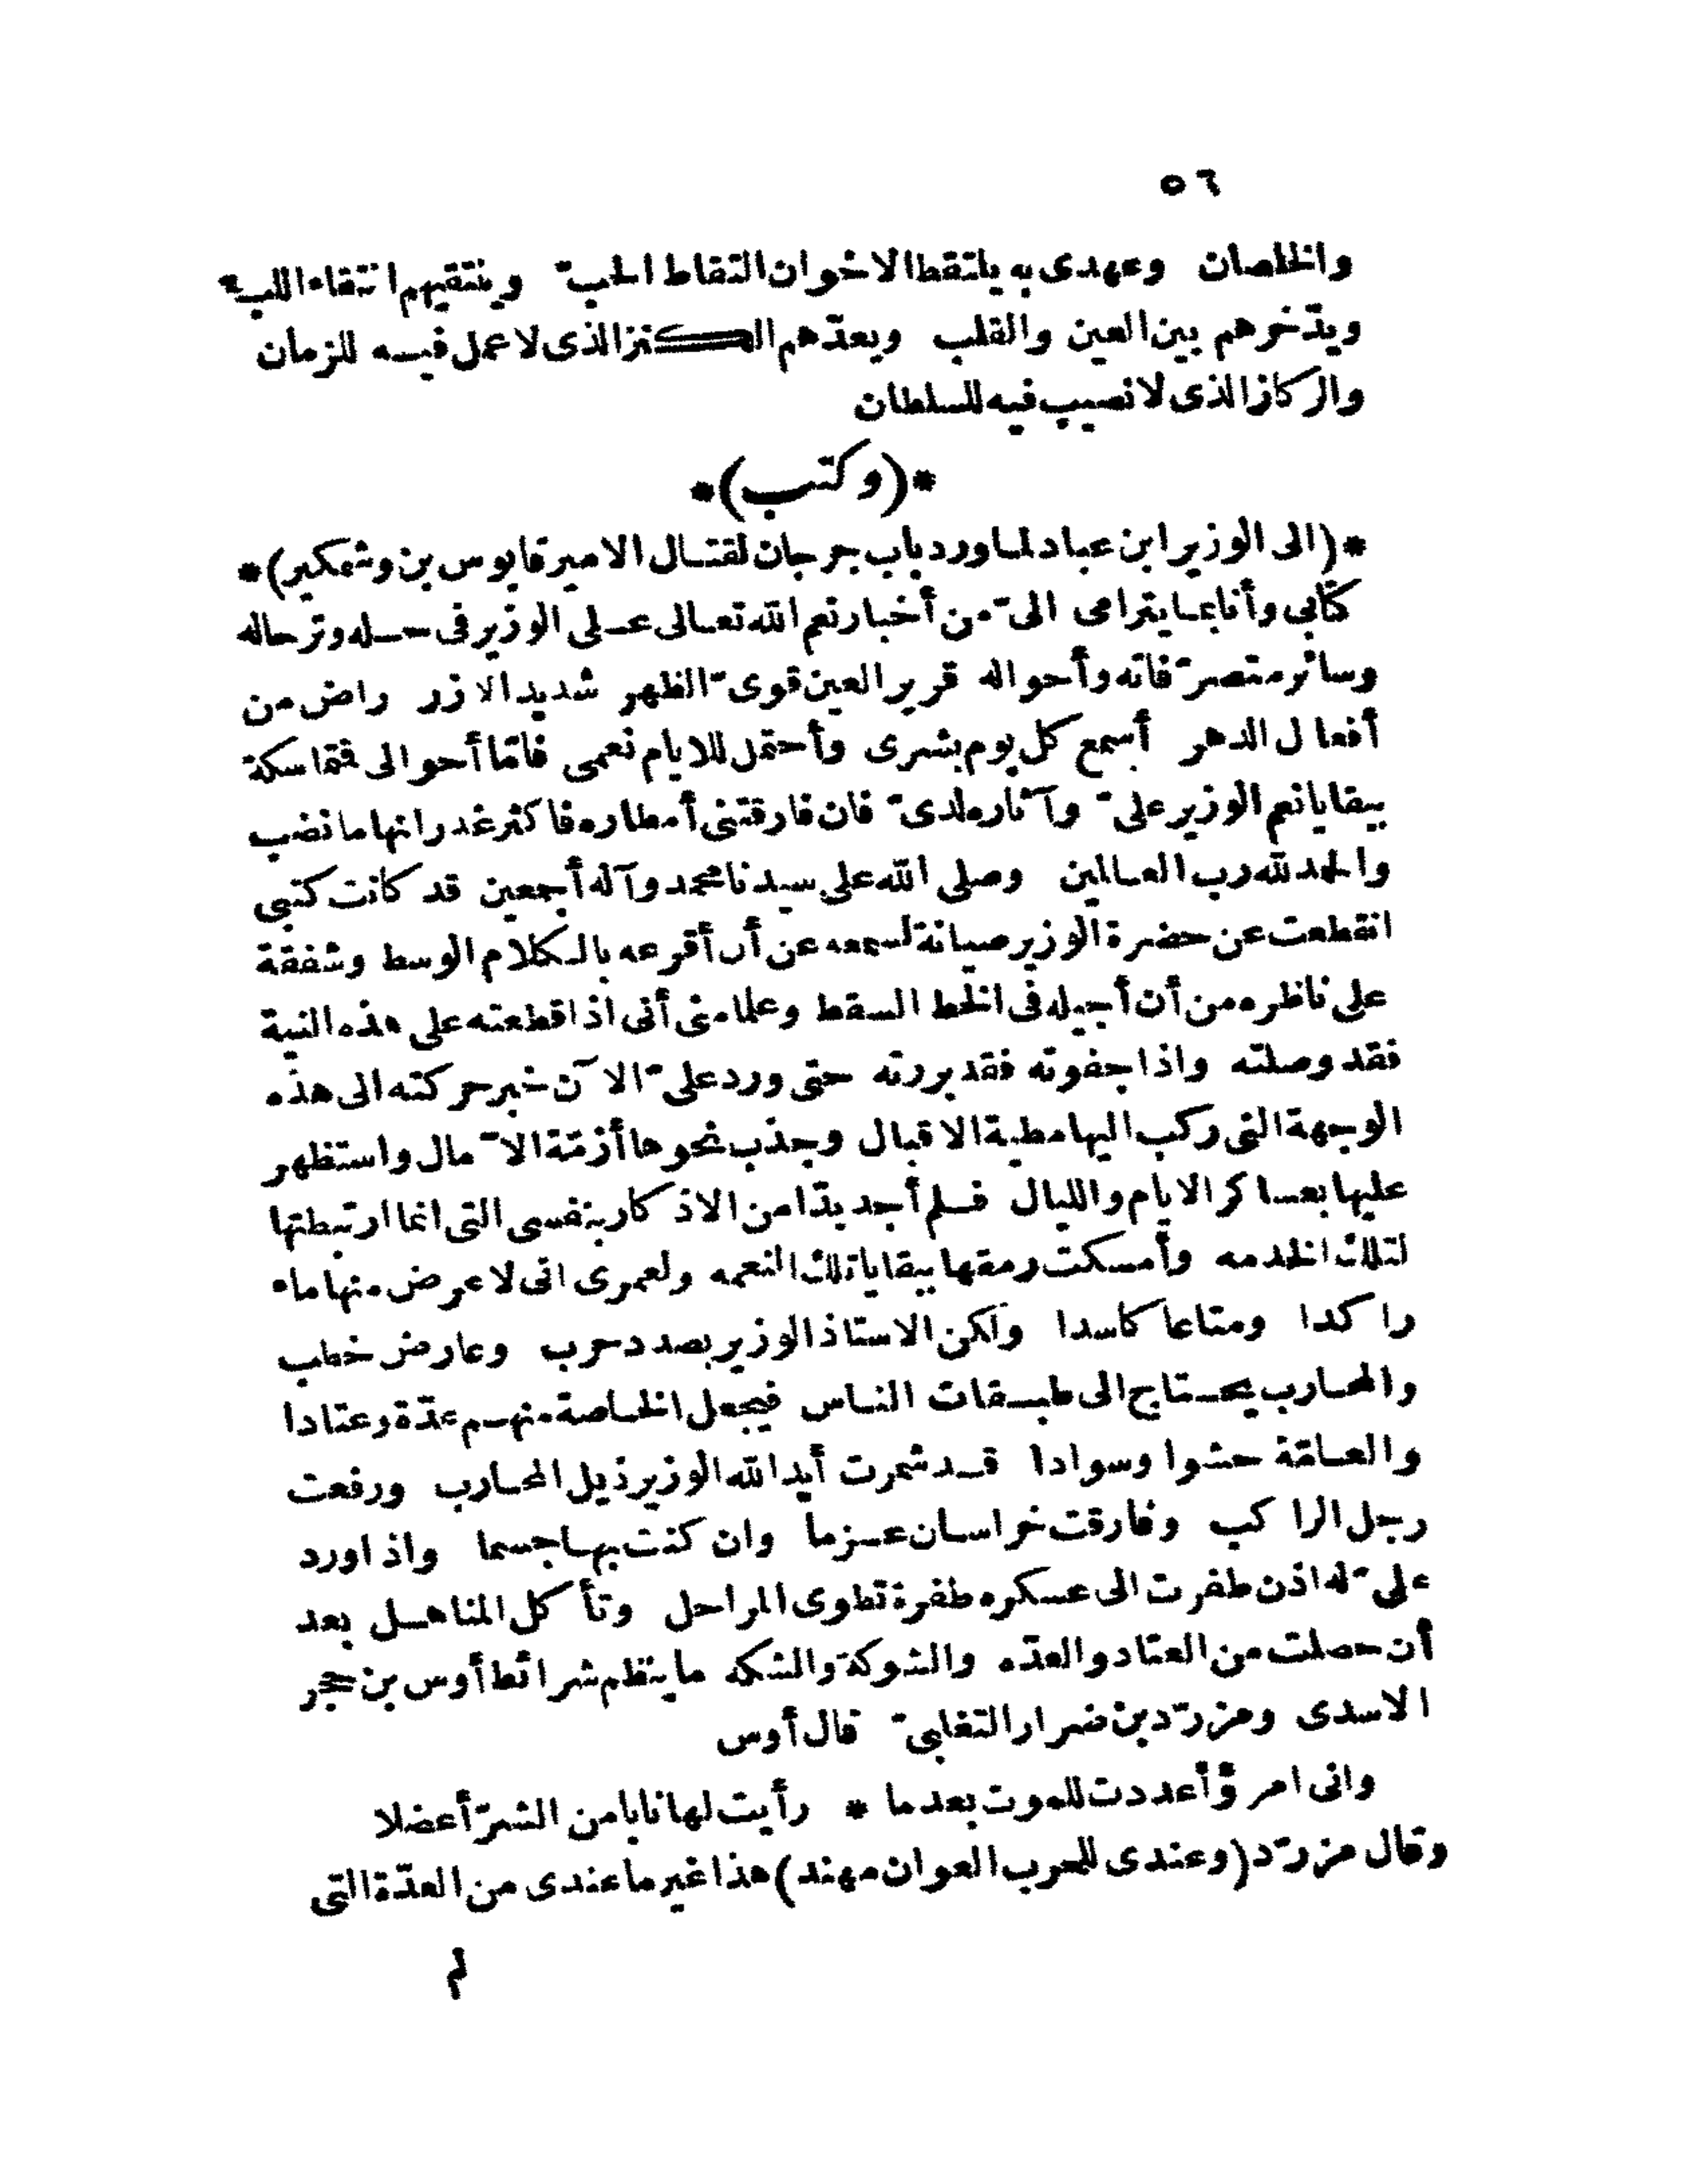 ٥٦
والخلصان وعهدى به يلتقط الاخوان التقاط الحبّ وينتقيهم انتقاء اللب
ويدّخرهم بين العين والقلب ويعدّهم الكنز الذى لا عمل فيه للزمان
والركاز الذى لا نصيب فيه للسلطان
*(وكتب)*
*(الى الوزير ابن عباد لما ورد باب جرجان لقتال الامير قابوس بن وشمكير)*
كتابى وأنا بما يترامى الىّ من أخبار نعم الله تعالى على الوزير فى حله وترحاله
وسائر متصرّفاته وأحواله قرير العين قوىّ الظهر شديد الازر راض من
أفعال الدهر أسمع كل يوم بشرى وأحتمل للايام نعمى فامّا أحوالى فمتماسكة
ببقايا نعم الوزير علىّ وآثاره لدىّ فان فارقتنى أمطاره فاكثر غدرانها ما نضب
والحمد لله رب العالمين وصلى الله على سيدنا محمد وآله أجمعين قد كانت كتبى
انقطعت عن حضرة الوزير صيانة لسمعه عن أن أقرعه بالكلام الوسط وشفقة
على ناظره من أن أجيله فى الخط السقط وعلما منى أنى اذا قطعته على هذه النية
فقد وصلته واذا جفوته فقد بررته حتى ورد علىّ الآن خبر حركته الى هذه
الوجهة التى ركب اليها مطية الاقبال وجذب نحوها أزمّة الآمال واستظهر
عليها بعساكر الايام والليال فلم أجد بدّا من الاذكار بنفسى التى انما ارتبطتها
لتلك الخدمه وأمسكت رمقها ببقايا تلك النعمه ولعمرى انى لاعرض منها ماء
راكدا ومتاعا كاسدا ولكن الاستاذ الوزير بصدد حرب وعارض خطب
والمحارب يحتاج الى طبقات الناس فيجعل الخاصة منهم عدّة وعتادا
والعامّة حشوا وسوادا قد شمرت أيد الله الوزير ذيل المحارب ورفعت
رجل الراكب وفارقت خراسان عزما وان كنت بها جسما واذا ورد
علىّ له اذن طفرت الى عسكره طفرة تطوى المراحل وتأكل المناهل بعد
أن حصلت من العتاد والعدّه والشوكة والشكه ما ينظم شرائط أوس بن حجر
الاسدى ومزرّد بن ضرار التغلبىّ قال أوس
وانى امرؤ أعددت للموت بعدما * رأيت لها نابا من الشرّ أعضلا
وقال مزرّد (وعندى للحرب العوان مهند) هذا غير ما عندى من العدّة التى
لم